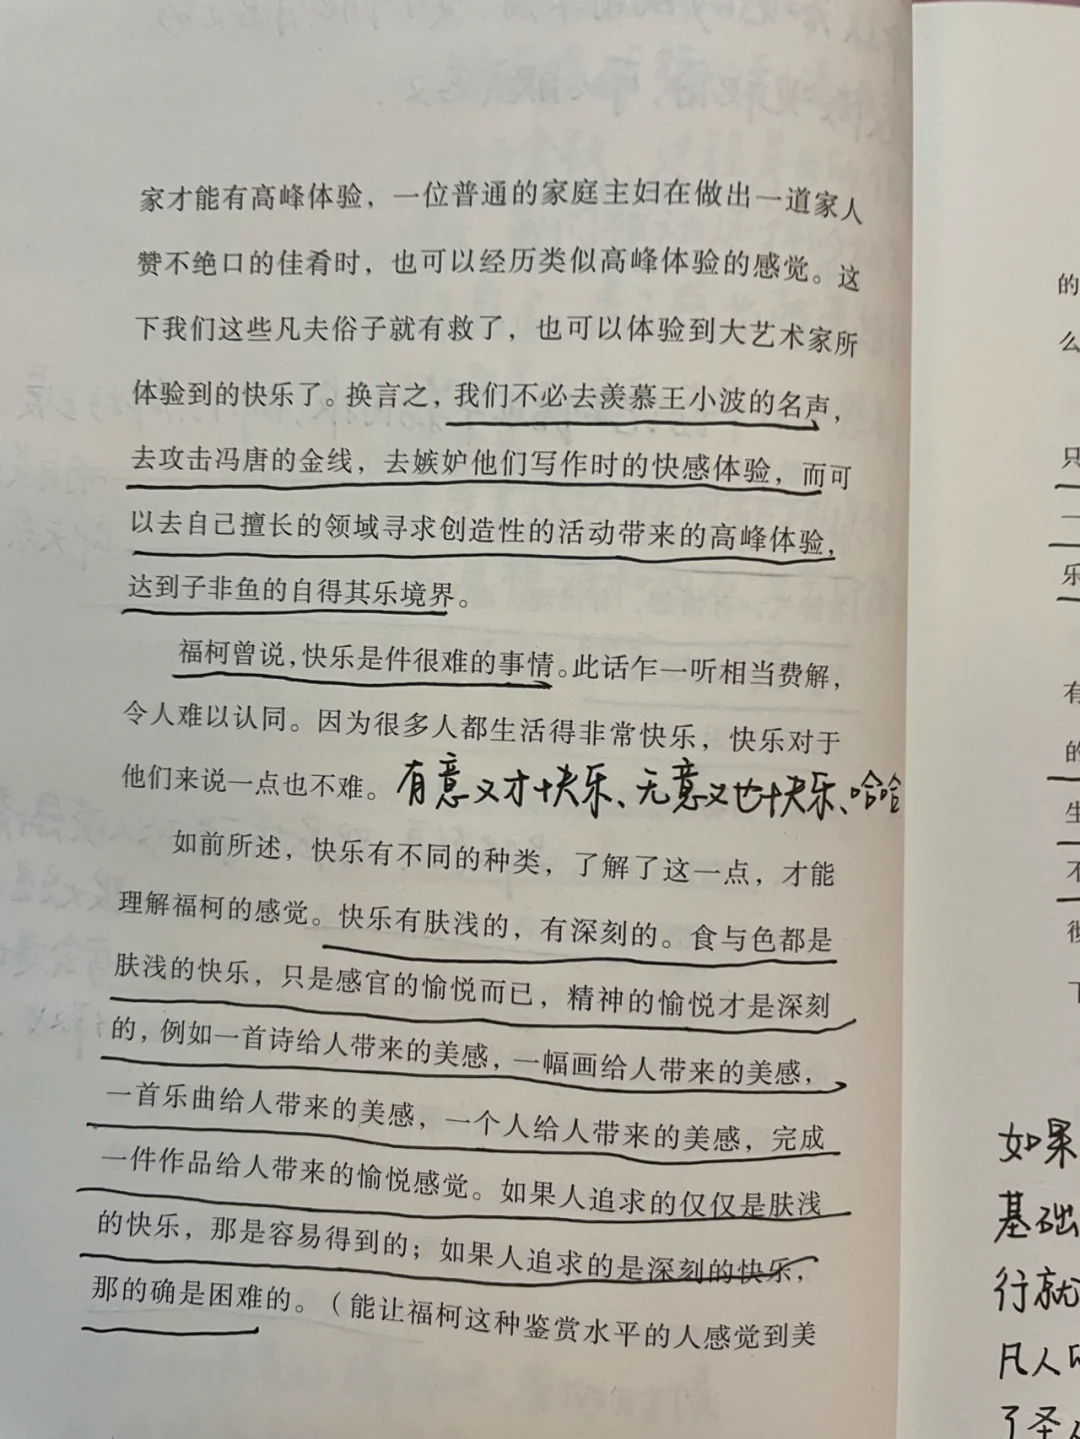 家才能有高峰体验，一位普通的家庭主妇在做出一道家人
赞不绝口的佳肴时，也可以经历类似高峰体验的感觉。这
下我们这些凡夫俗子就有救了，也可以体验到大艺术家所
体验到的快乐了。换言之，我们不必去羡慕王小波的名声，
去攻击冯唐的金线，去嫉妒他们写作时的快感体验，而可
以去自己擅长的领域寻求创造性的活动带来的高峰体验，
达到子非鱼的自得其乐境界。
福柯曾说，快乐是件很难的事情。此话乍一听相当费解，
令人难以认同。因为很多人都生活得非常快乐，快乐对于
他们来说一点也不难。有意义才快乐、无意义也快乐、哈哈
如前所述，快乐有不同的种类，了解了这一点，才能
理解福柯的感觉。快乐有肤浅的，有深刻的。食与色都是
肤浅的快乐，只是感官的愉悦而已，精神的愉悦才是深刻
的，例如一首诗给人带来的美感，一幅画给人带来的美感，
一首乐曲给人带来的美感，一个人给人带来的美感，完成
一件作品给人带来的愉悦感觉。如果人追求的仅仅是肤浅
的快乐，那是容易得到的；如果人追求的是深刻的快乐，
那的确是困难的。（能让福柯这种鉴赏水平的人感觉到美
的
么
只
一
乐
有
的
生
不
如果
基础
行就
凡人
了圣